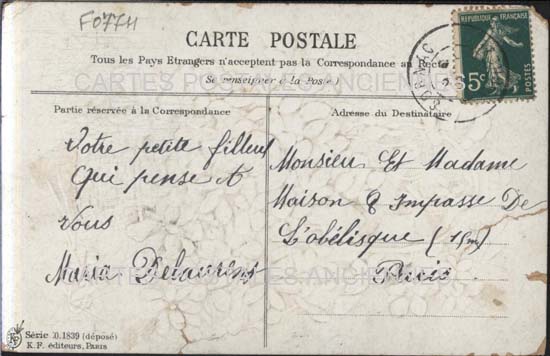 F0774
CARTE POSTALE
Tous les Pays Etrangers n'acceptent pas la Correspondance au Recto
(Se renseigner à la Poste)
CARTES POSTALES ANCIENNES
REPUBLIQUE FRANÇAISE
5c
POSTES
Partie réservée à la Correspondance
Votre petite filleul
Qui pense A
Vous
Maria Delaurens
Adresse du Destinataire
Monsieur Et Madame
Maison 8 Impasse De
L'obélisque (15m)
Paris
CARTES POSTALES ANCIENNES
Série 1839 (déposé)
K. F. éditeurs, PARIS